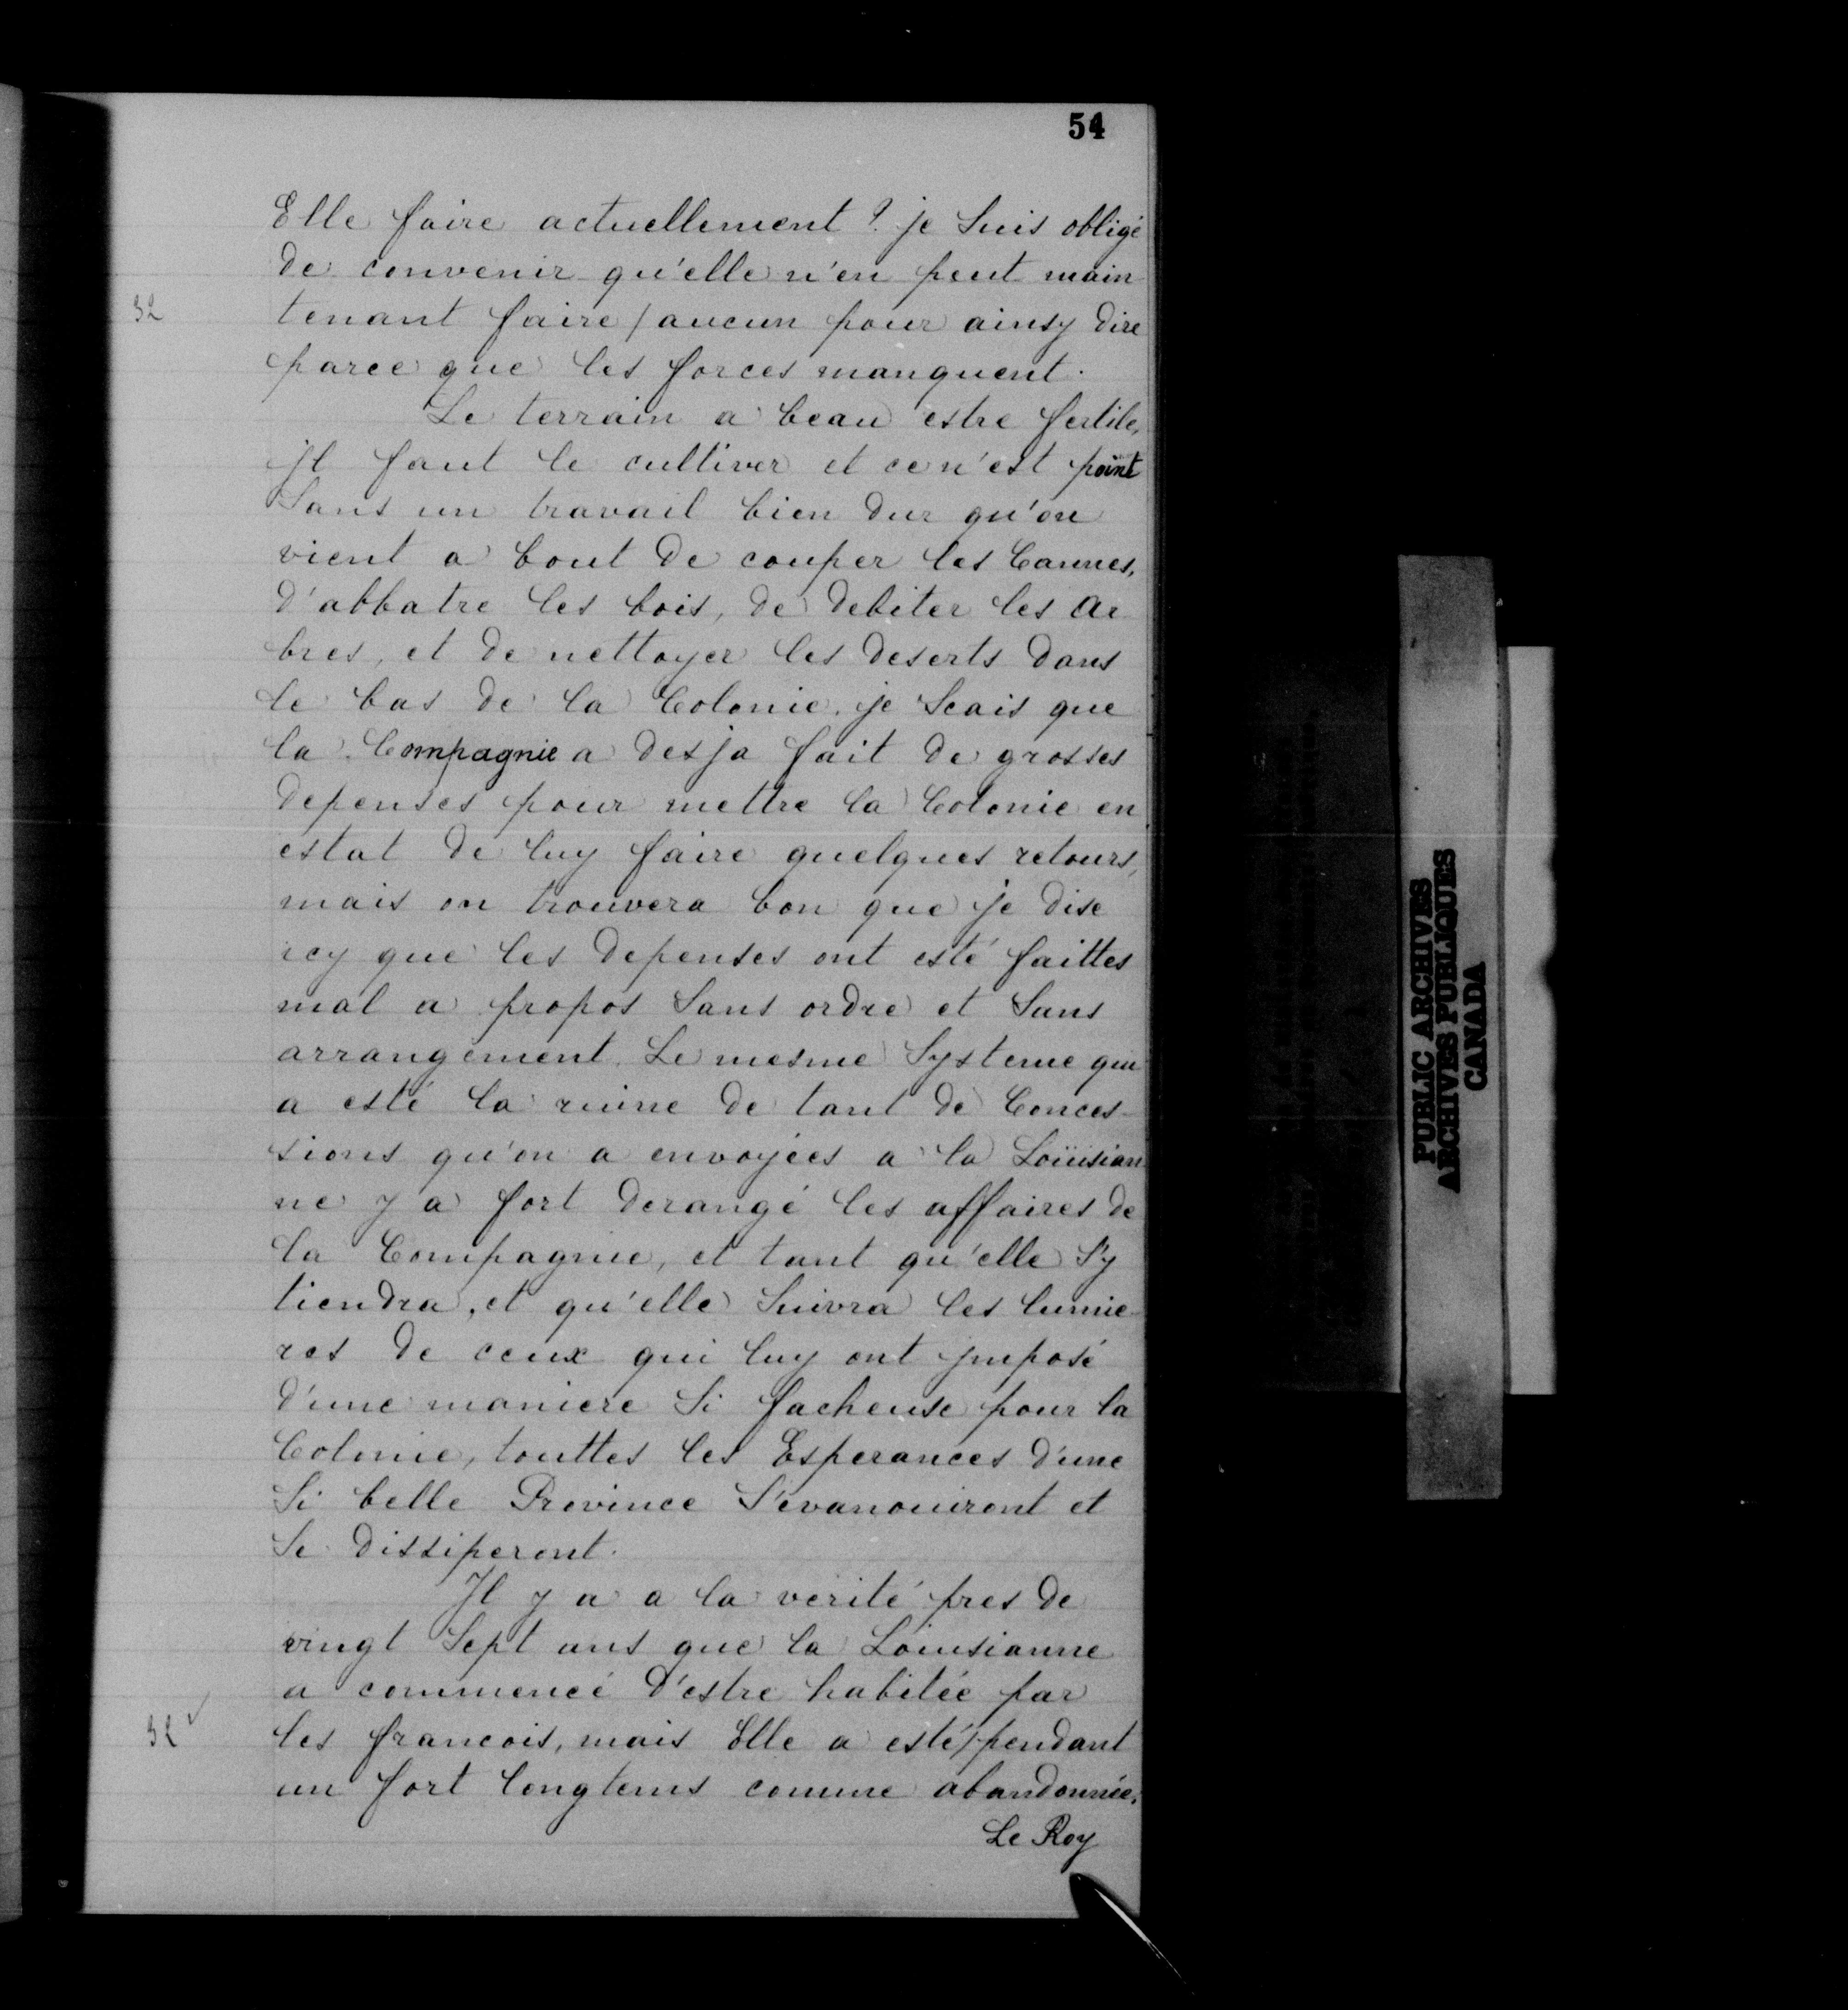 54
Elle faire actuellement? je Suis obligé
de convenir qu'elle n'en peut main
32
tenant faire / aucun pour ainsy dire
parce que les forces manquent.
Le terrain a beau estre fertile,
jl faut le cultiver et ce n'est point
Sans un travail bien dur qu'on
vient a bout de couper les Cannes,
d'abbatre les bois, de debiter les ar
bres, et de nettoyer les deserts dans
le bas de la Colonie. je Scais que
la Compagnie a desja fait de grosses
depenses pour mettre la Colonie en
estat de luy faire quelques retours,
mais on trouvera bon que je dise
icy que les depenses ont esté faittes
mal a propos Sans ordre et Sans
arrangement. Le mesme Systeme qui
a esté la ruine de tant de Conces-
sions qu'on a envoyées a la Loüisian
ne y a fort derangé les affaires de
la Compagnie, et tant qu'elle S'y
tiendra, et qu'elle Suivra les lumie-
res de ceux qui luy ont jmposé
d'une maniere Si facheuse pour la
Colonie, touttes les Esperances d'une
Si belle Province S'evanouiront et
Se dissiperont.
Il y a a la verité pres de
vingt Sept ans que la Louisianne
a commencé d'estre habitée par
32
les francois, mais Elle a esté / pendant
un fort longtems comme abandonnée,
Le Roy
PUBLIC ARCHIVES
ARCHIVES PUBLIQUES
CANADA